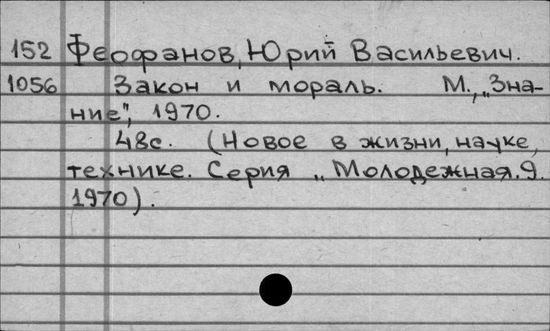 152 Феофанов, Юрий Васильевич.
1056 Закон и мораль. М., „Зна-
ние", 1970.
48с. (Новое в жизни, науке,
технике. Серия „Молодежная. 9.
1970).